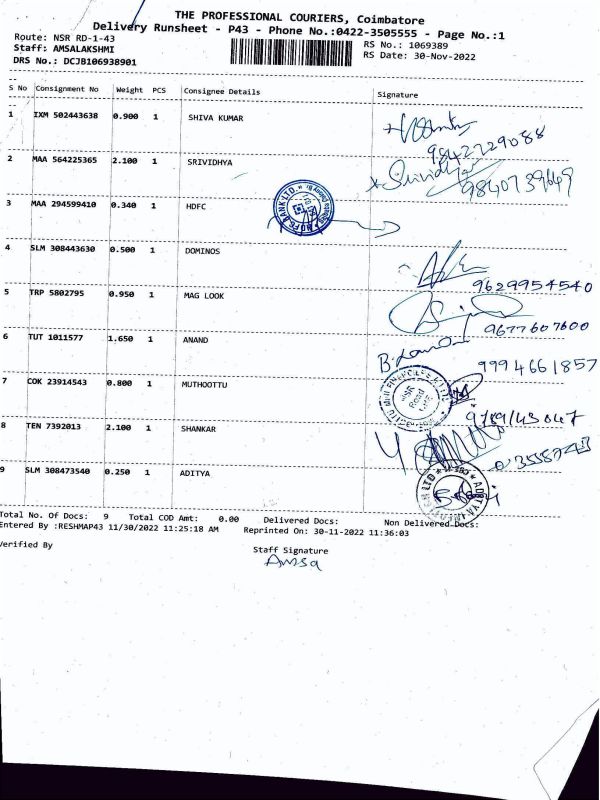 THE PROFESSIONAL COURIERS, Coimbatore
Delivery Runsheet - P43 - Phone No.:0422-3505555 - Page No.:1
Route: NSR RD-1-43
Staff: AMSALAKSHMI
DRS No.: DCJB106938901
RS No.: 1069389
RS Date: 30-Nov-2022
S No Consignment No Weight PCS Consignee Details Signature
1 IXM 502443638 0.900 1 SHIVA KUMAR
9842729088
2 MAA 564225365 2.100 1 SRIVIDHYA
Srividhya
9840739649
3 MAA 294599410 0.340 1 HDFC
HDFC BANK LTD.
4 SLM 308443630 0.500 1 DOMINOS
9629954540
5 TRP 5802795 0.950 1 MAG LOOK
9677607600
6 TUT 1011577 1.650 1 ANAND
9994661857
7 COK 23914543 0.800 1 MUTHOOTTU
NSR
Road
8 TEN 7392013 2.100 1 SHANKAR
9 SLM 308473540 0.250 1 ADITYA
Total No. Of Docs: 9 Total COD Amt: 0.00 Delivered Docs: Non Delivered Docs:
Entered By :RESHMAP43 11/30/2022 11:25:18 AM Reprinted On: 30-11-2022 11:36:03
Verified By
Staff Signature
Amsa